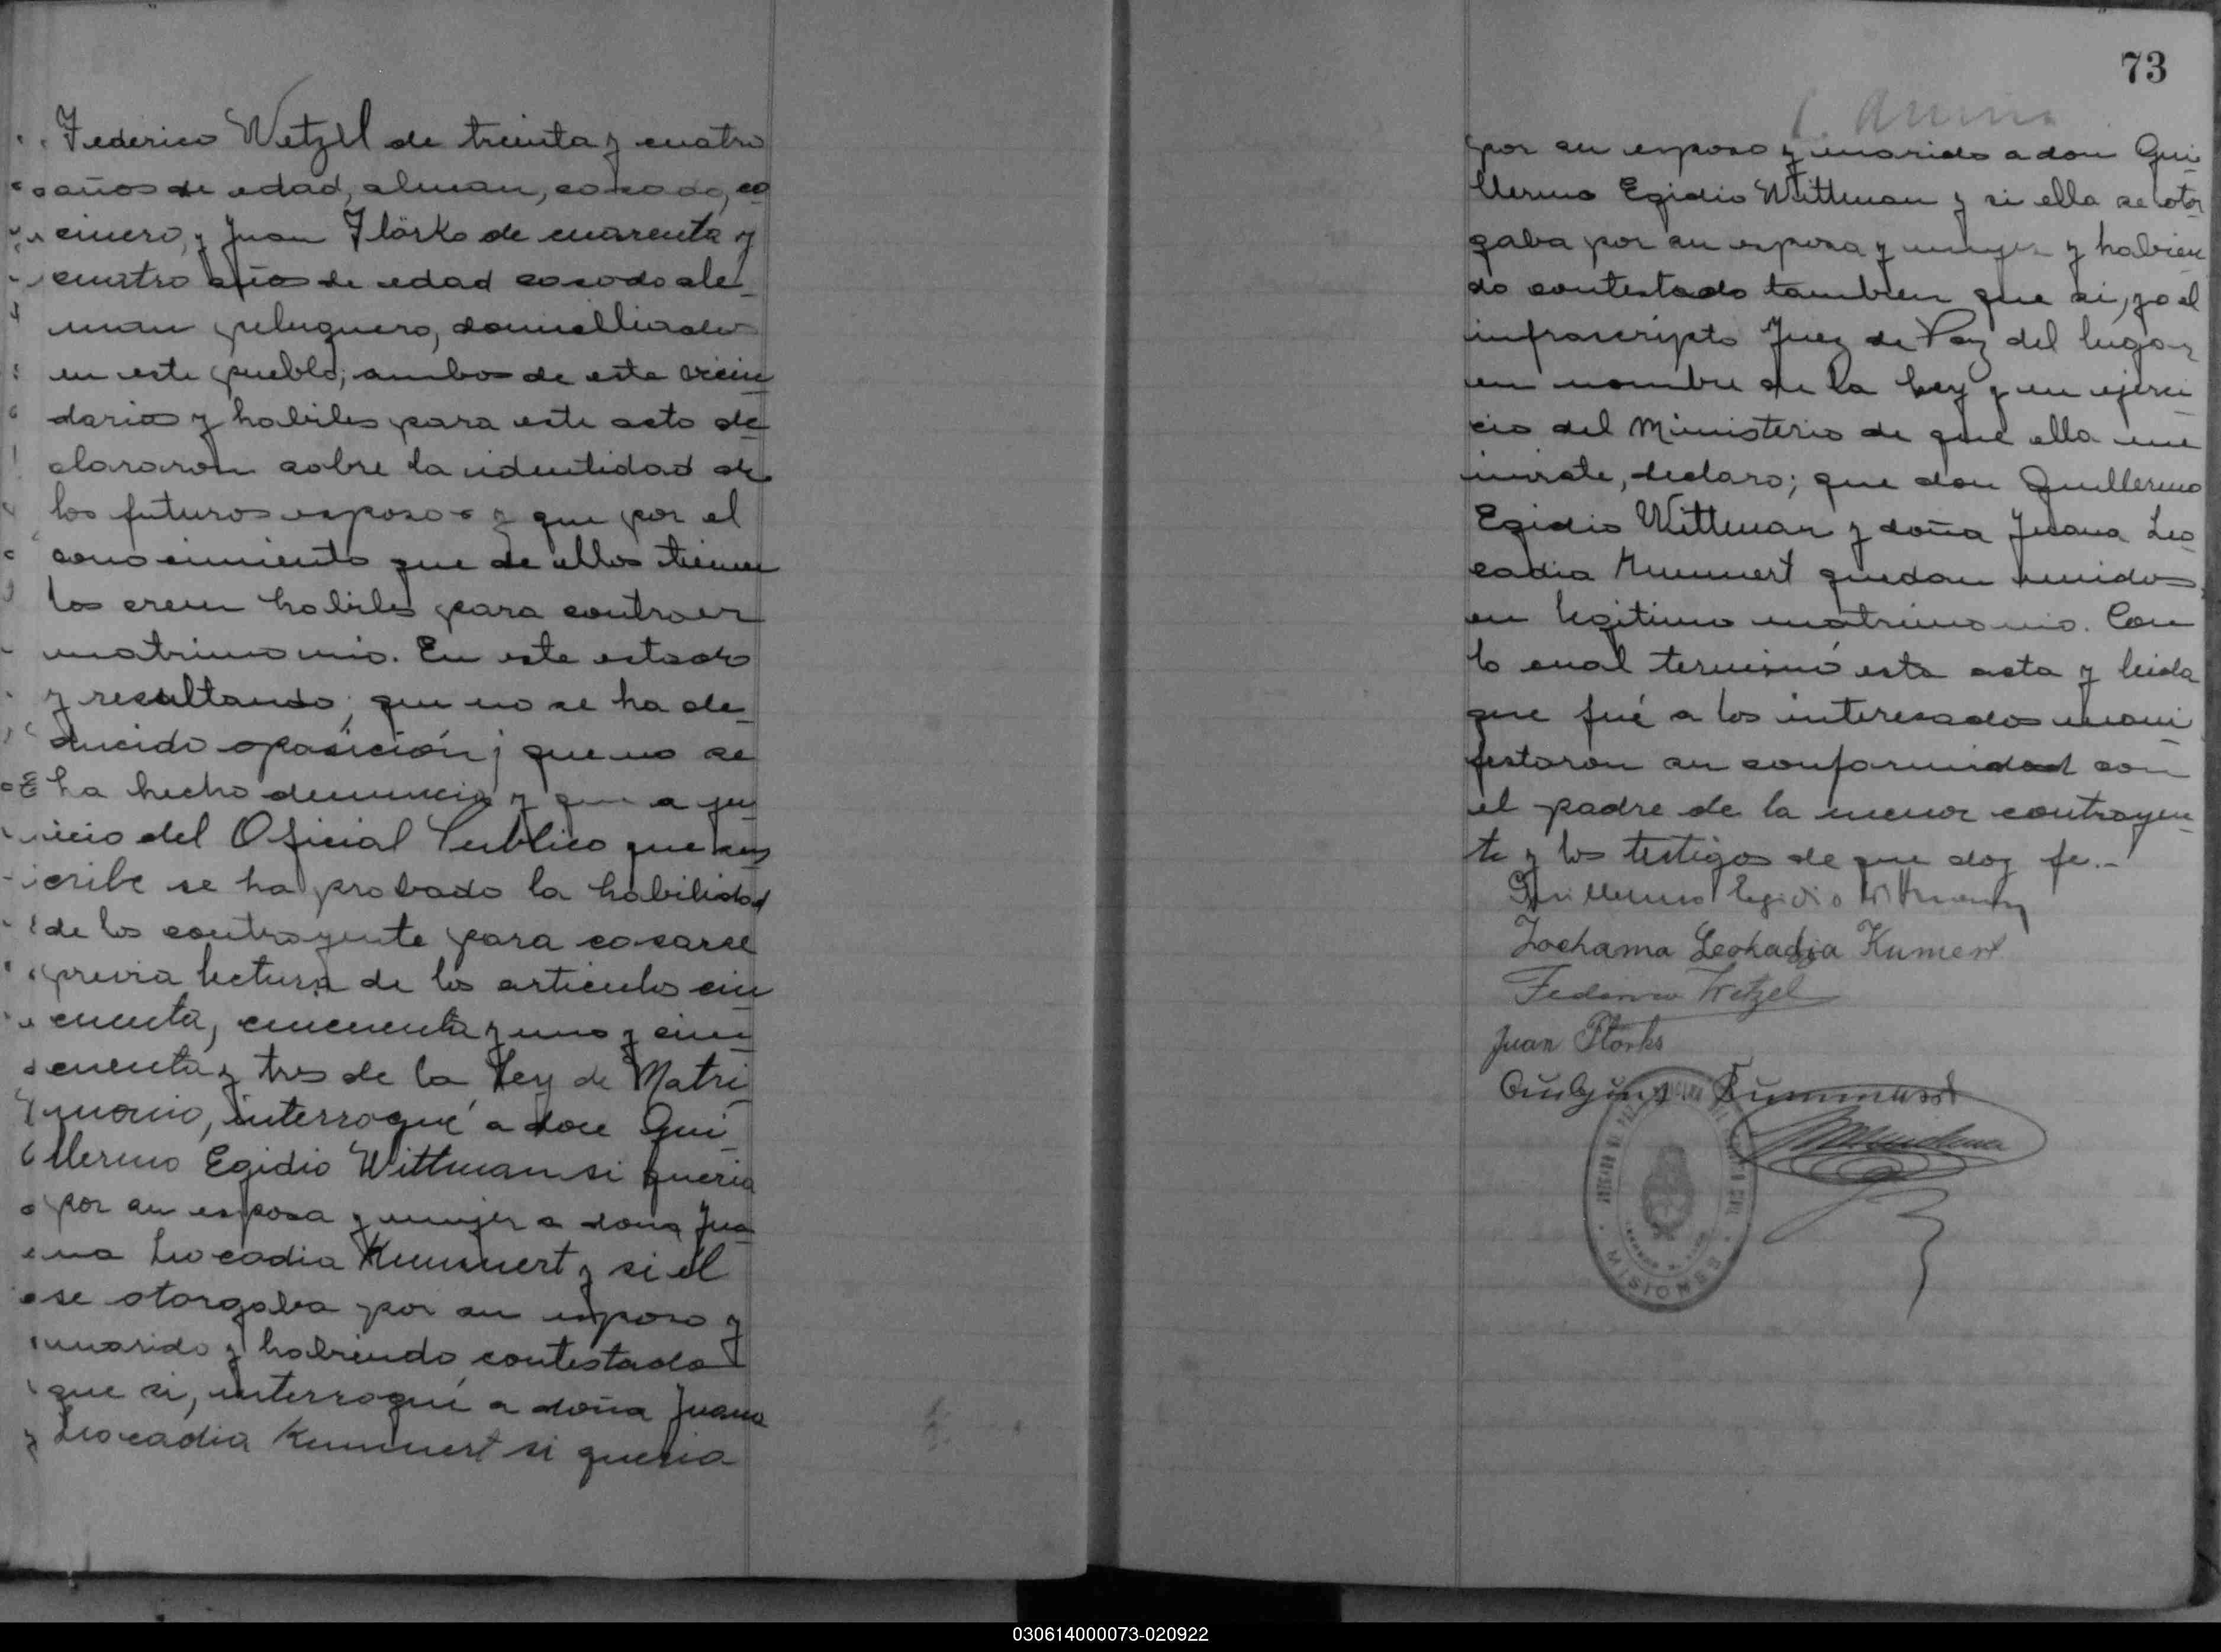 Federico Wetzel de treinta y cuatro
años de edad, aleman, casado, co
cinero, y Juan Flörks de cuarenta y
cuatro años de edad casado ale
man peluquero, domicilliados
en este pueblo; ambos de este vecin
dario y habiles para este acto de
clararon sobre la identidad de
los futuros esposos y que por el
conocimiento que de ellos tienen
los creen habiles para contraer
matrimonio. En este estado
y resultando; que no se ha de
ducido oposición; que no se
ha hecho denuncia y que a ju
icio del Oficial Publico que sus
cribe se ha probado la habilidad
de los contrayente para casarse
previa lectura de los articulos cin
cuenta, cincuenta y uno y cin
cuenta y tres de la Ley de Matri
monio, interrogué a don Gui
llermo Egidio Wittman si queria
por su esposa y mujer a doña Jua
na Leocadia Kummert y si él
se otorgaba por su esposo y
marido y habiendo contestado
que si, interrogué a doña Juana
Leocadia Kummert si queria
73
por su esposo y marido a don Gui
llermo Egidio Wittman y si ella se otor
gaba por su esposa y mujer y habien
do contestado tambien que si, yo el
infrascripto Juez de Paz del lugar
en nombre de la Ley y en ejerci
cio del Ministerio de que ella me
inviste, declaro; que don Guillermo
Egidio Wittman y doña Juana Leo
cadia Kummert quedan unidos
en legitimo matrimonio. Con
lo cual terminó esta acta y leida
que fué a los interesados mani
festaron su conformidad con
el padre de la menor contrayen
te y los testigos de que doy fe.-
Guillermo Egidio Wittmann
Johama Leokadja Kumert
Federico Wetzel
Juan Flörks
Kummert
MISIONES
030614000073-020922